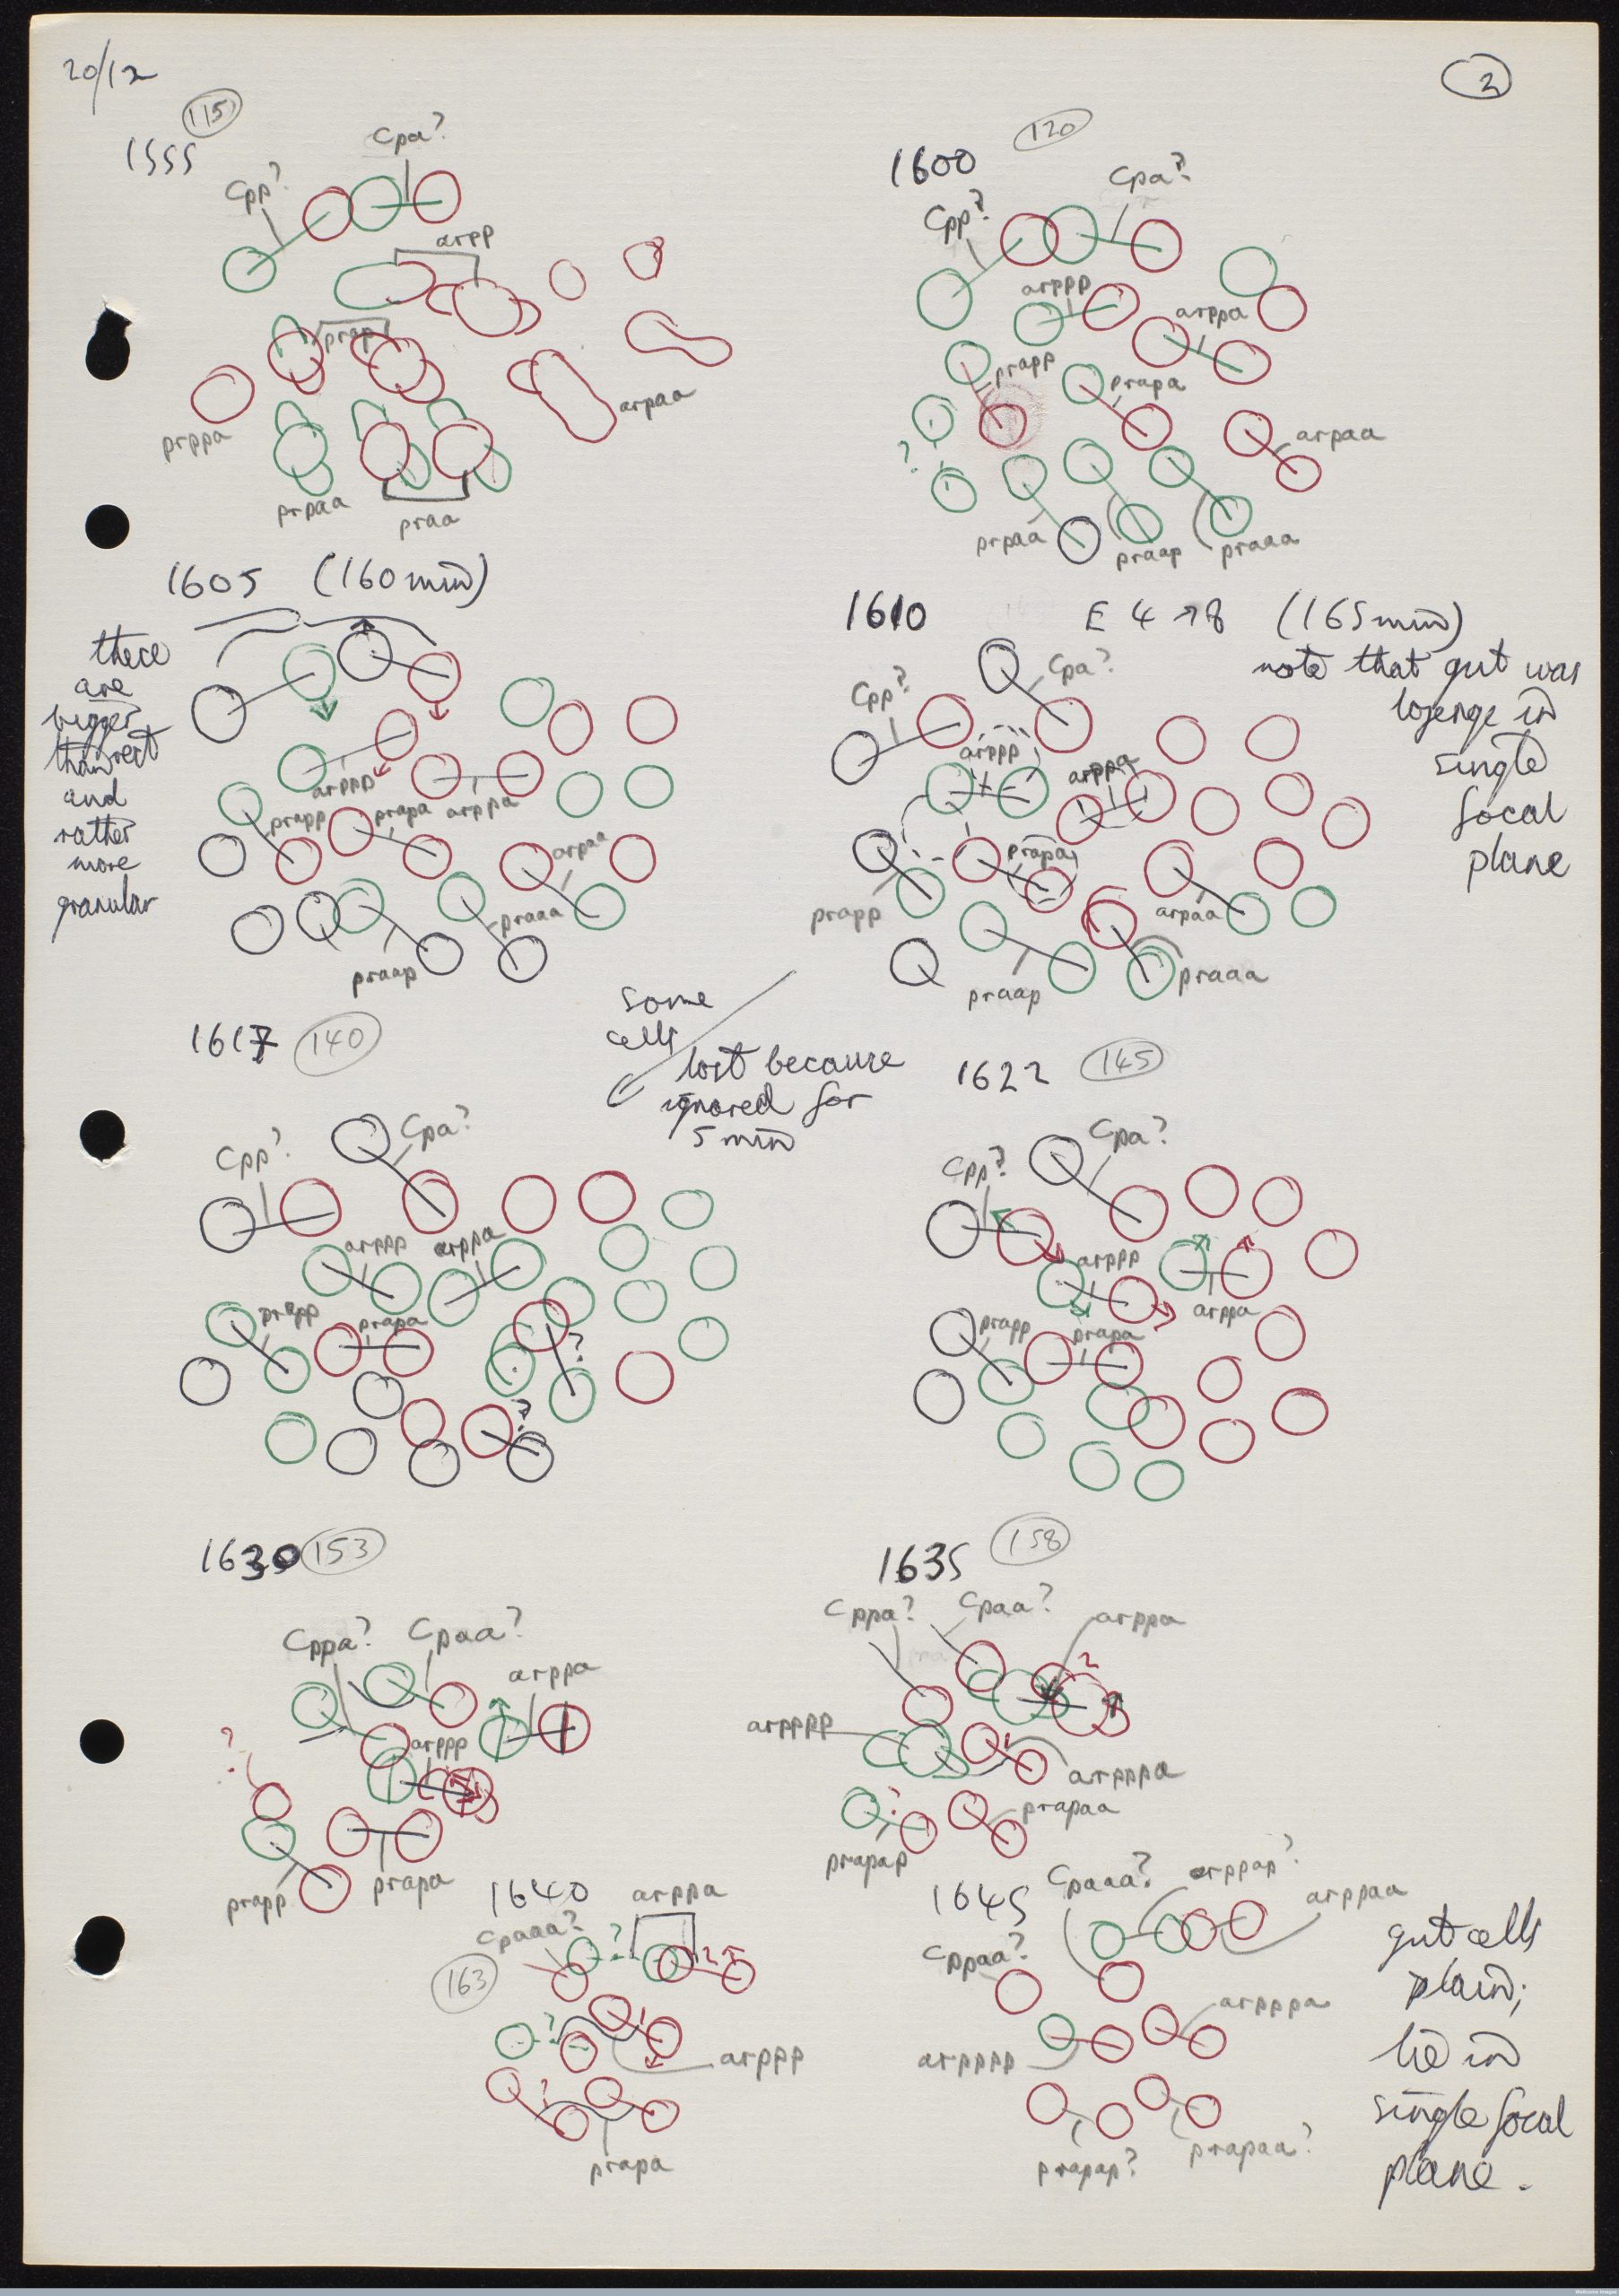 20/12
2
115
1555
Cpa?
Cpp?
arpp
prap
arpaa
prppa
prpaa
praa
120
1600
Cpa?
Cpp?
arppp
arppa
prapp
prapa
arpaa
?
prpaa
praap
praaa
1605 (160 min)
there
are
bigger
than rest
and
rather
more
granular
arppp
prapp
prapa
arppa
arpaa
praaa
praap
1610 E 4 → 8 (165 min)
note that gut was
lozenge in
single
focal
plane
Cpa?
Cpp?
arppp
arppa
prapa
prapp
arpaa
praap
praaa
some
cells
lost because
ignored for
5 min
1617
140
Cpa?
Cpp?
arppp
arppa
prapp
prapa
?
?
1622
145
Cpa?
Cpp?
arppp
arppa
prapp
prapa
1630
153
Cppa?
Cpaa?
arppa
arppp
?
prapp
prapa
1635
158
Cppa?
Cpaa?
arppa
?
arpppp
arpppa
?
prapaa
prapap
1640
arppa
Cpaaa?
163
?
?
?
arppp
?
prapa
1645
Cpaaa?
arppap?
arppaa
Cppaa?
arpppa
arpppp
prapap?
prapaa?
gut cells
plain;
lie in
single focal
plane.